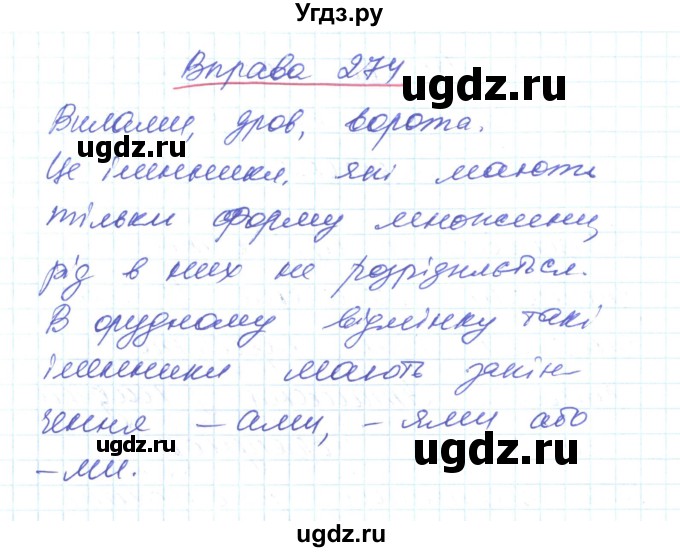 Угдз.ру
Вправа 274
ugdz.ru
Вилами, дров, ворота.
ugdz.ru
Це іменники, які мають
тільки форму множини,
ugdz.ru
рід в них не розрізняється.
ugdz.ru
В орудному відмінку такі
іменники мають закін-
чення – ами, – ями або
ugdz.ru
ugdz.ru
–ми.
ugdz.ru